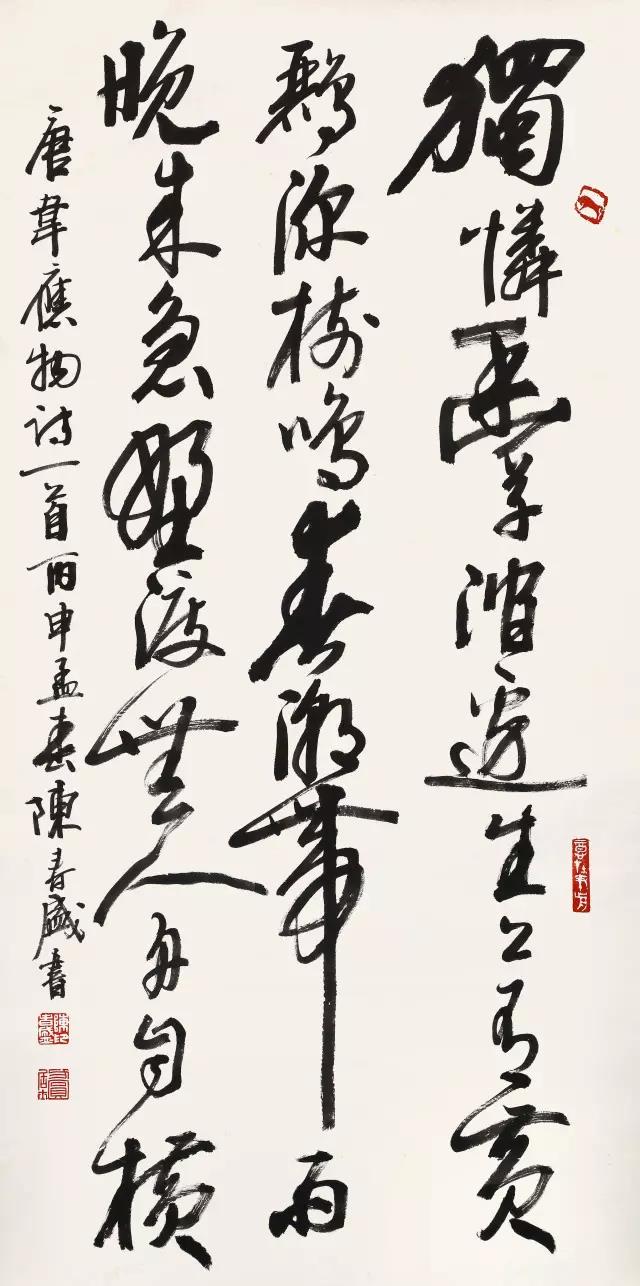 獨憐幽草澗邊生上有黃
鸝深樹鳴春潮帶雨
晚來急野渡無人舟自橫
唐韋應物詩一首丙申孟春陳春盛書